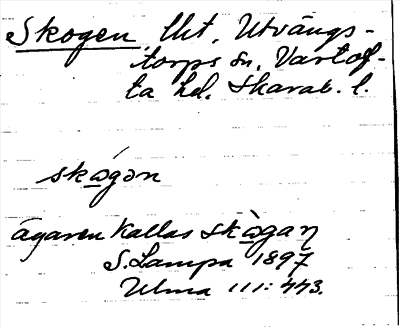 Skogen, lht, Utvängs-
torps sn, Vartof-
ta hd. Skarab. l.
skógən
ägaren kallas skògaɳ
S. Lampa 1897
Ulma 111: 443.